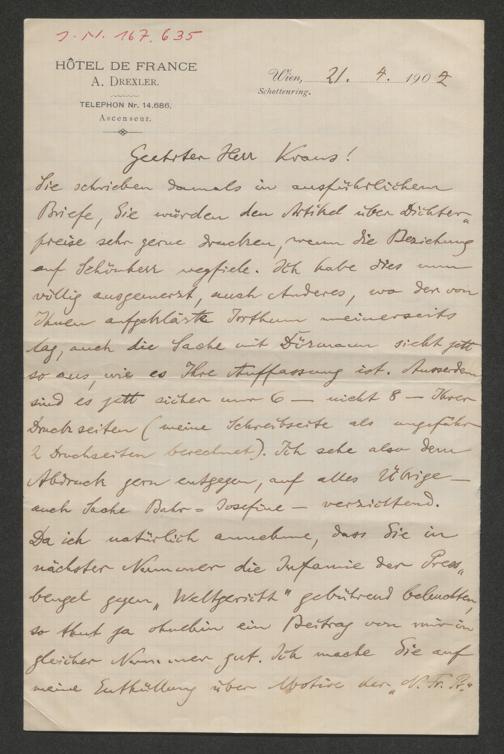 J. N. 167.635
HÔTEL DE FRANCE
A. DREXLER.
TELEPHON Nr. 14.686.
Ascenseur.
Wien, 21. 4. 1902
Schottenring.
Geehrter Herr Kraus!
Sie schrieben damals in ausführlichem
Briefe, Sie würden den Artikel über Dichter-
preise sehr gerne drucken, wenn die Beziehung
auf Schönherr wegfiele. Ich habe dies nun
völlig ausgemerzt, auch Anderes, wo der von
Ihnen aufgeklärte Irrthum meinerseits
lag, auch die Sache mit Dörmann sieht jett
so aus, wie es Ihre Auffassung ist. Ausserdem
sind es jett sicher nur 6 — nicht 8 — Ihrer
Druckseiten (meine Schreibseite als ungefähr
2 Druckseiten berechnet). Ich sehe also dem
Abdruck gern entgegen, auf alles Übrige —
auch Sache Bahr = Josefine — verzichtend.
Da ich natürlich annehme, dass Sie in
nächster Nummer die Infamie der Press-
bengel gegen „Weltgericht" gebührend beleuchten,
so thut ja ohnehin ein Beitrag von mir in
gleicher Nummer gut. Ich mache Sie auf
meine Enthüllung über Motive der „N. Fr. Pr."